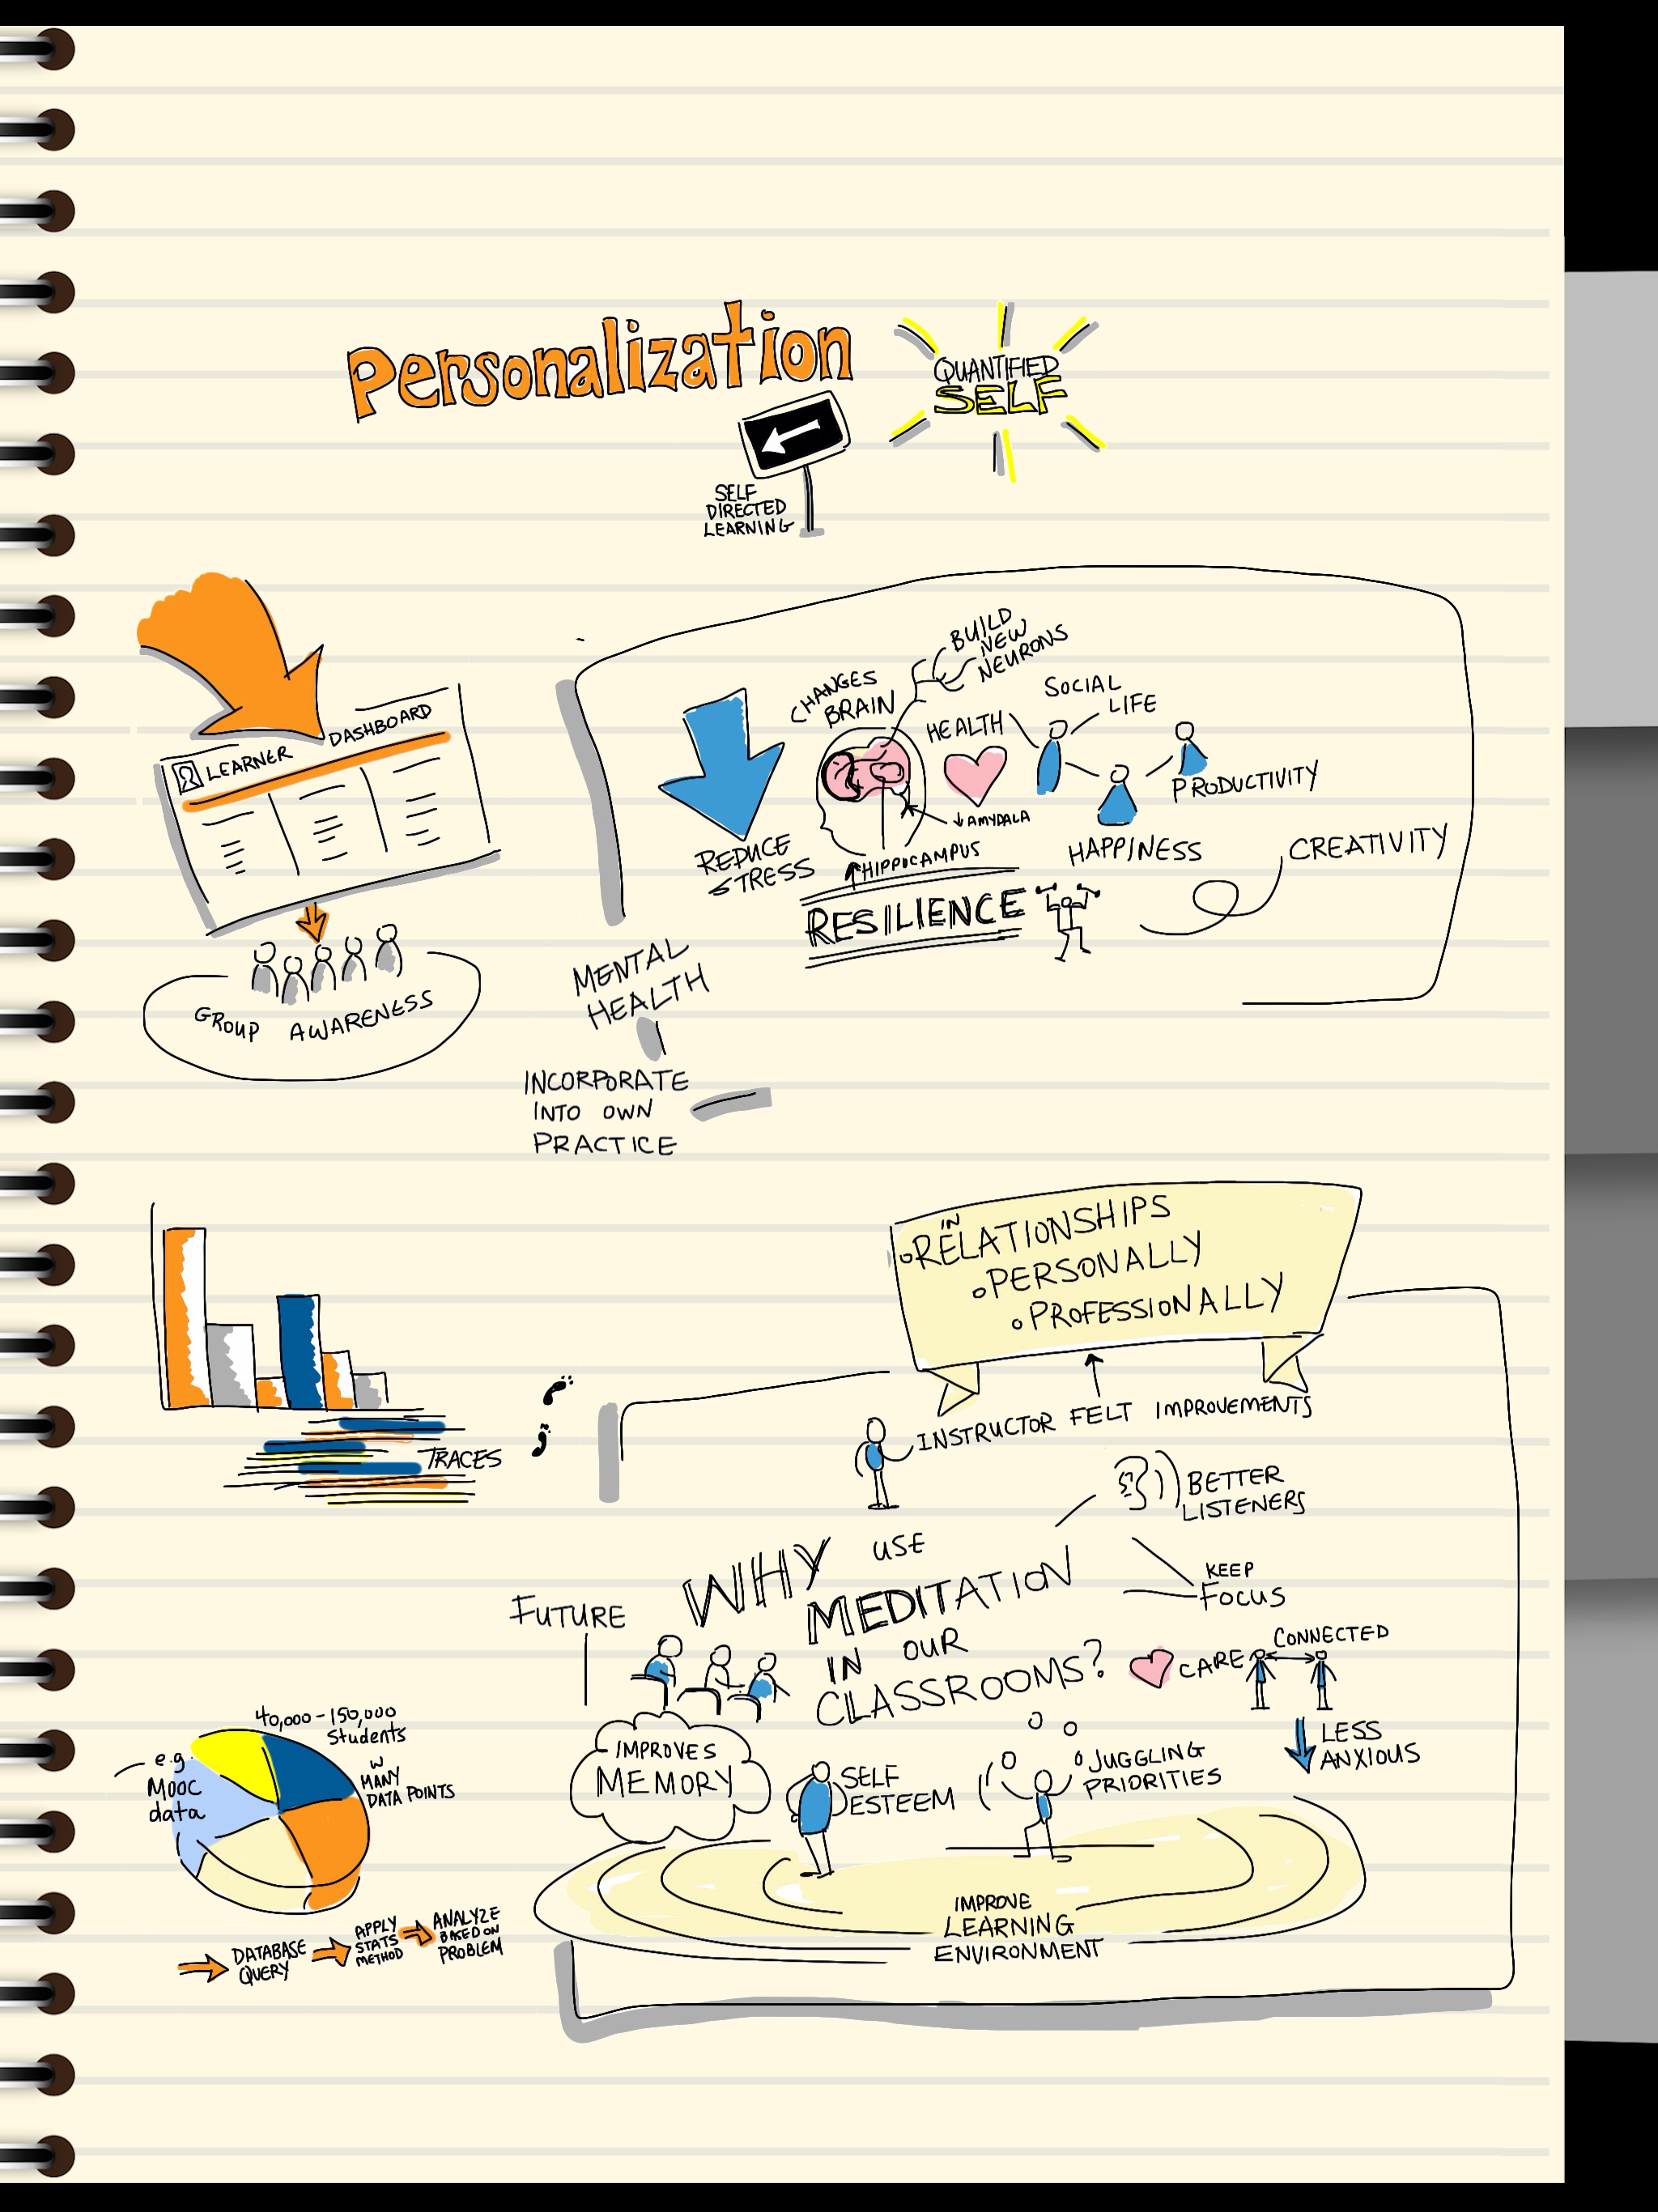 Personalization
QUANTIFIED
SELF
SELF
DIRECTED
LEARNING
LEARNER DASHBOARD
GROUP AWARENESS
REDUCE
STRESS
CHANGES
BRAIN
BUILD
NEW
NEURONS
HEALTH
SOCIAL
LIFE
PRODUCTIVITY
HAPPINESS
↓ AMYDALA
↑ HIPPOCAMPUS
RESILIENCE
CREATIVITY
MENTAL
HEALTH
INCORPORATE
INTO OWN
PRACTICE
TRACES
IN
RELATIONSHIPS
PERSONALLY
PROFESSIONALLY
INSTRUCTOR FELT IMPROVEMENTS
BETTER
LISTENERS
KEEP
FOCUS
FUTURE
WHY USE
MEDITATION
IN OUR
CLASSROOMS?
CARE
CONNECTED
LESS
ANXIOUS
IMPROVES
MEMORY
SELF
ESTEEM
JUGGLING
PRIORITIES
IMPROVE
LEARNING
ENVIRONMENT
40,000-150,000
Students
W
MANY
DATA POINTS
e.g.
Mooc
data
DATABASE
QUERY
APPLY
STATS
METHOD
ANALYZE
BASED ON
PROBLEM